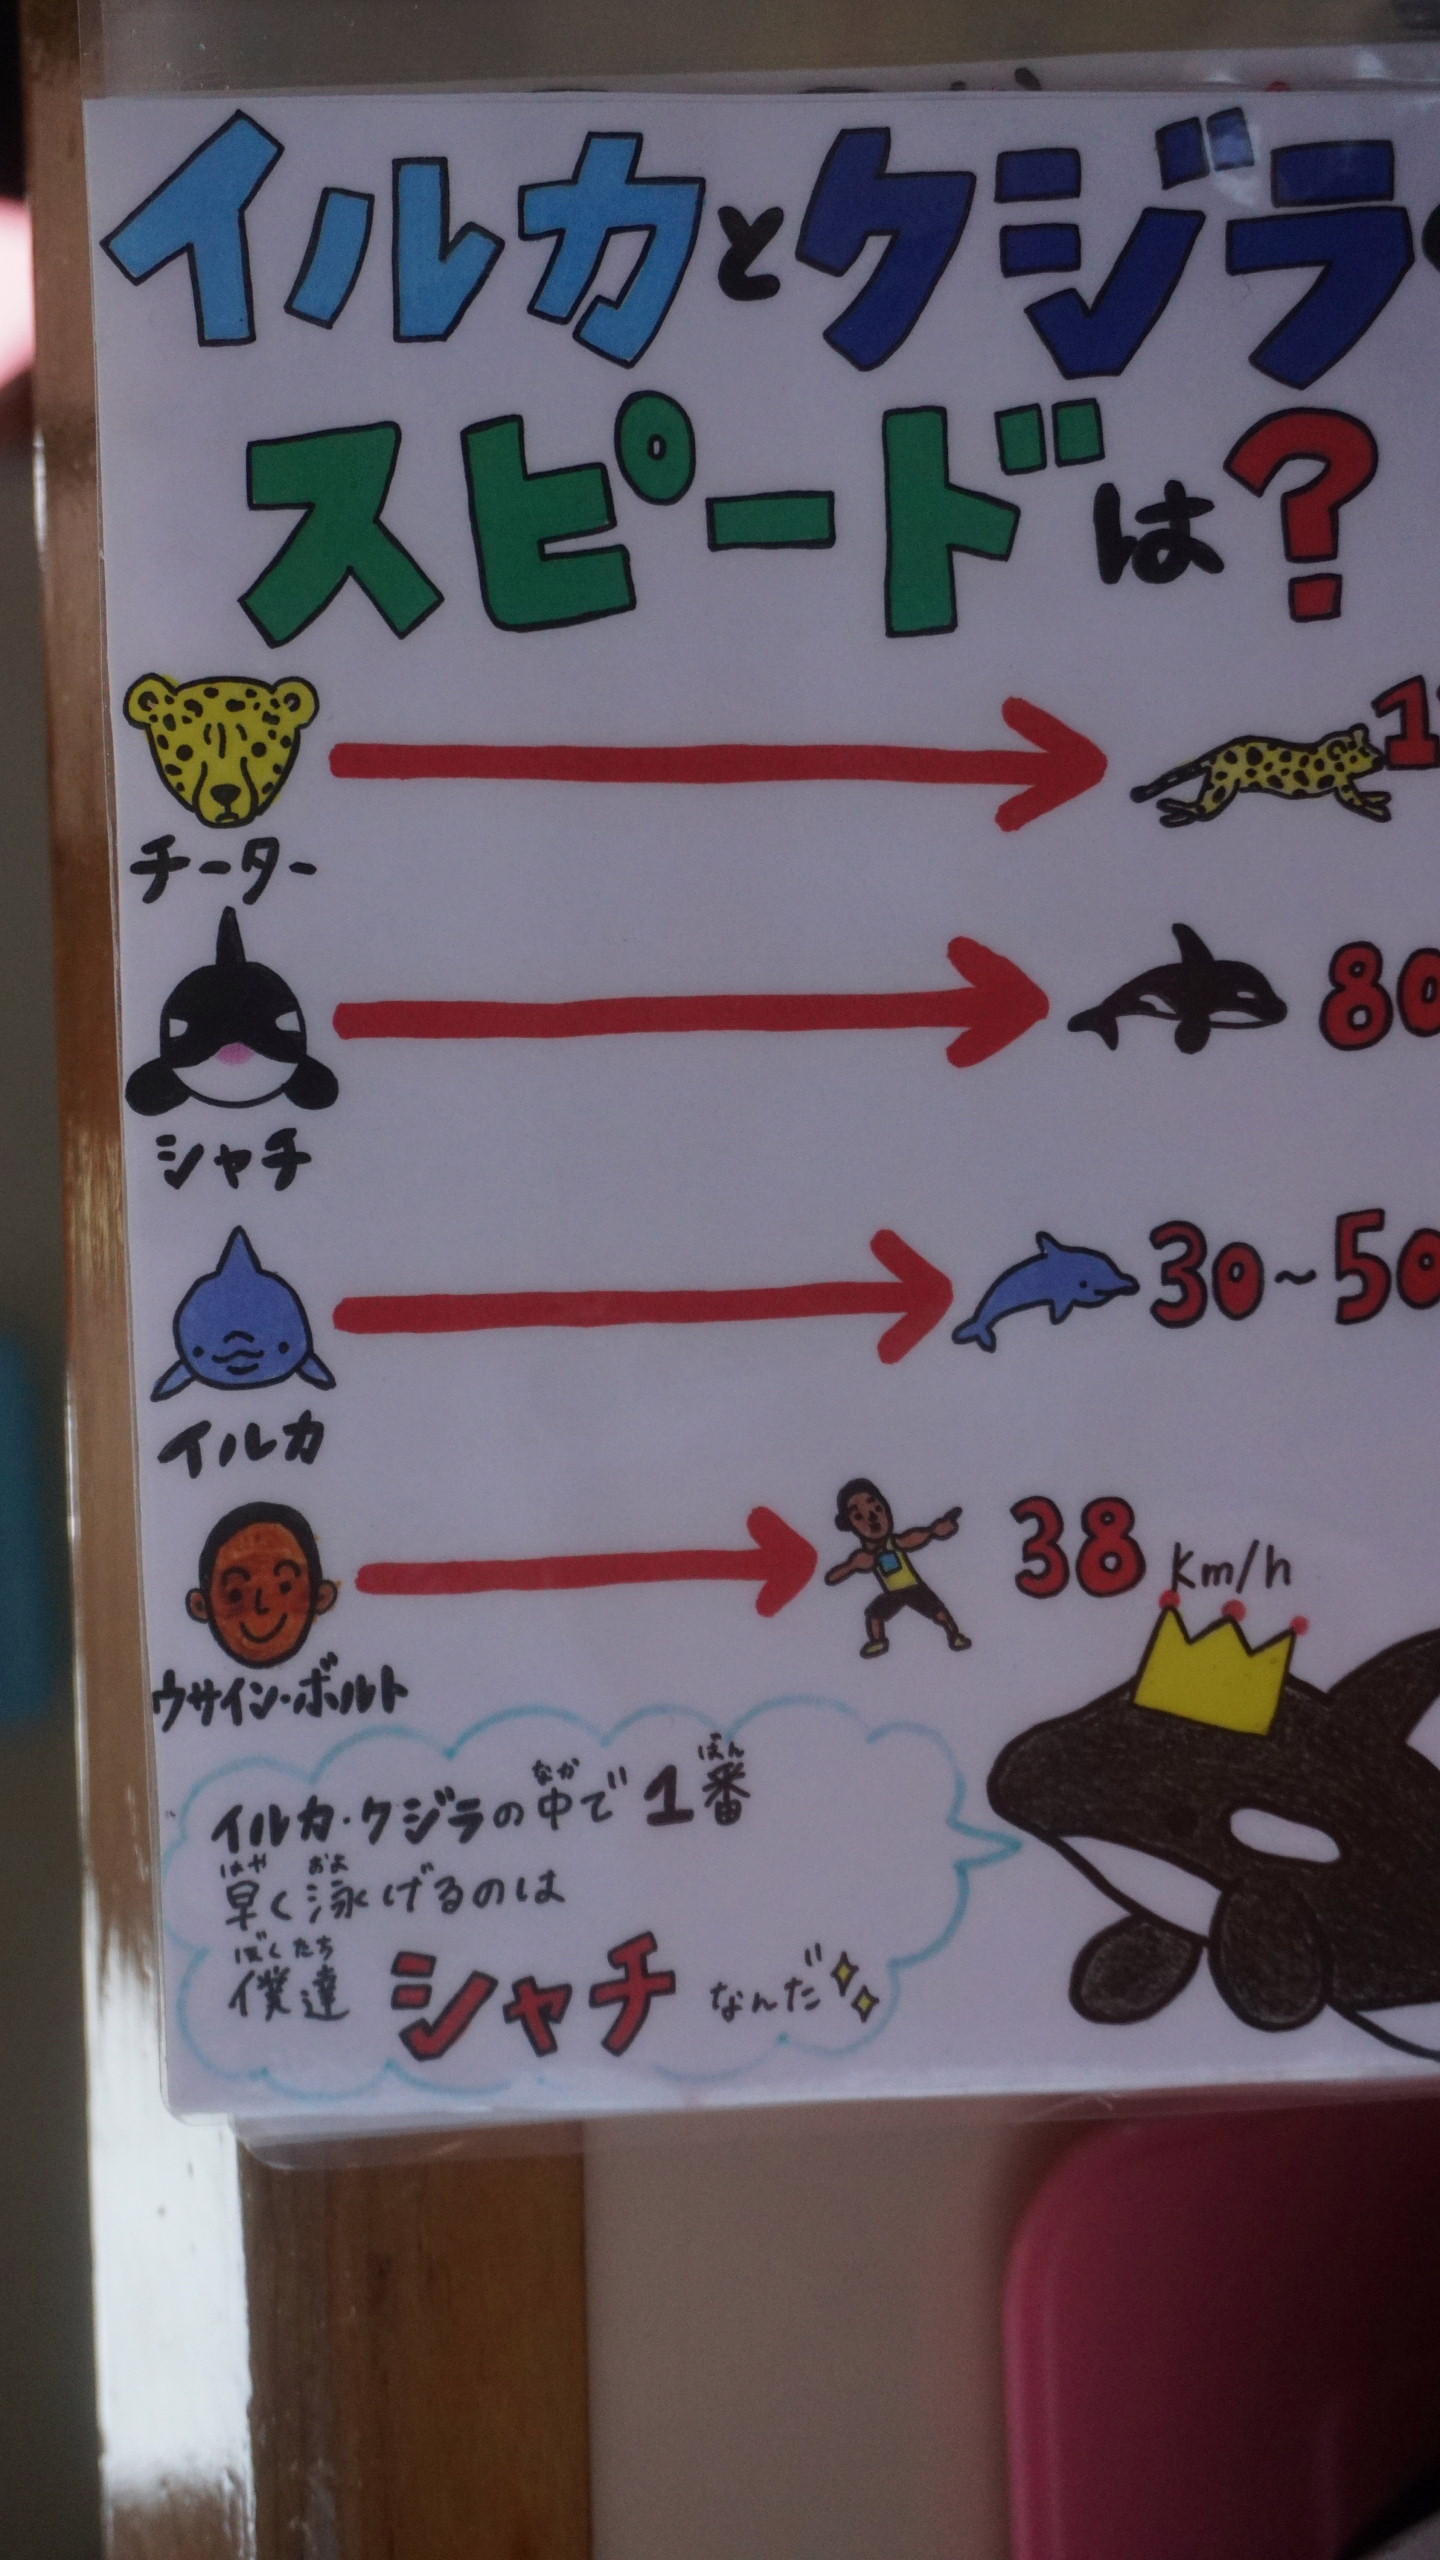 イルカとクジラ
スピードは?
チーター
シャチ
80
イルカ
30~50
ウサイン・ボルト
38 km/h
イルカ・クジラの中で1番
早く泳げるのは
僕達 シャチ なんだ
なか
ばん
はや
およ
ぼくたち